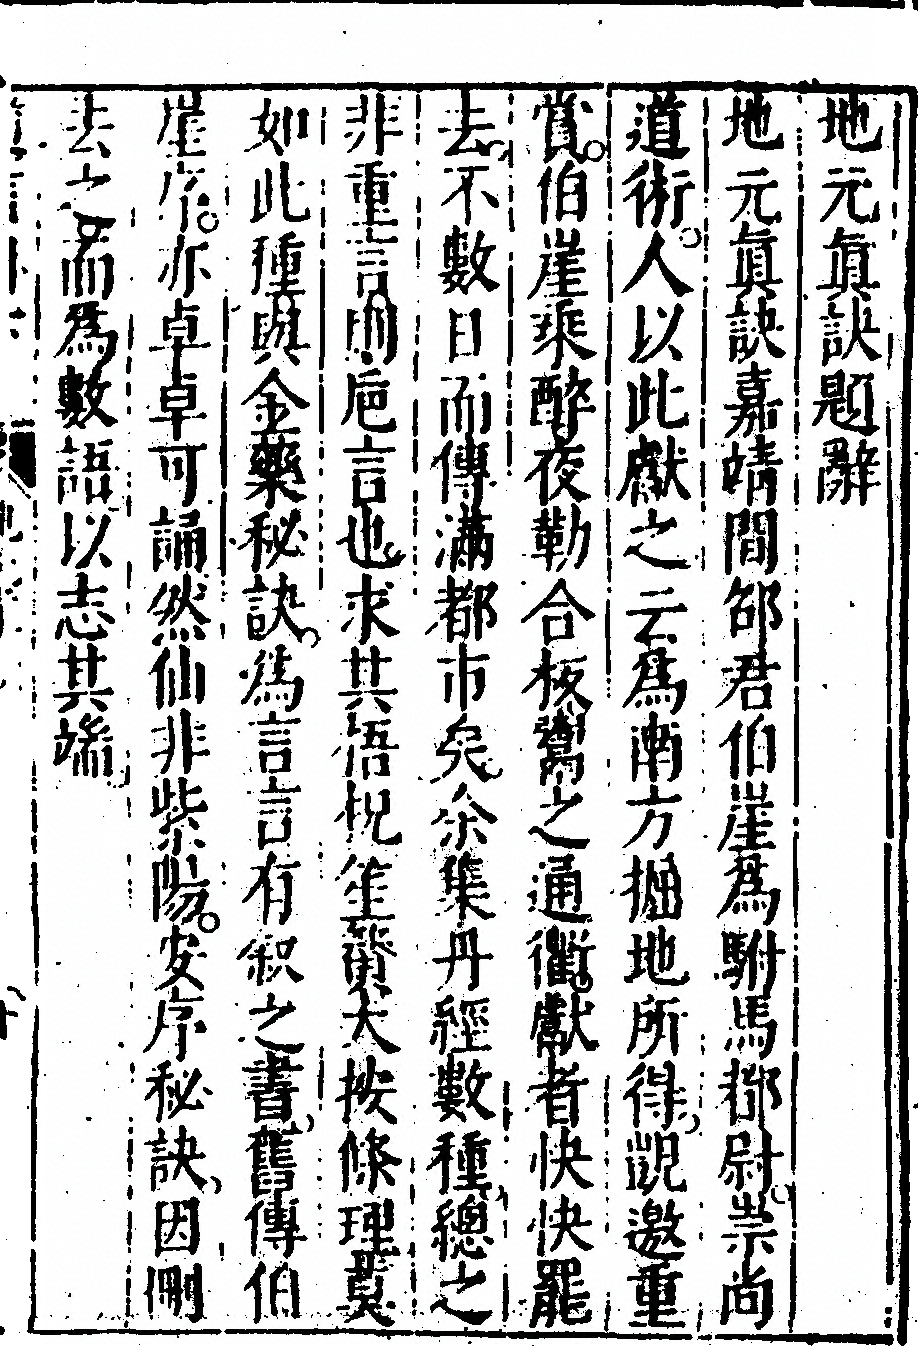 地元眞訣題辭
地元眞訣嘉靖間邵君伯崖爲駙馬都尉崇尚
道術人以此獻之云爲南方掘地所得覬邀重
賞伯崖乘醉夜勒合板鬻之通衢獻者怏怏罷
去不數日而傳滿都市矣余集丹經數種總之
非重言則巵言也求其浯柷笙簧大按條理莫
如此種與金藥秘訣爲言言有叙之書舊傳伯
崖序亦卓卓可誦然仙非紫陽安序秘訣因刪
去之而爲數語以志其端